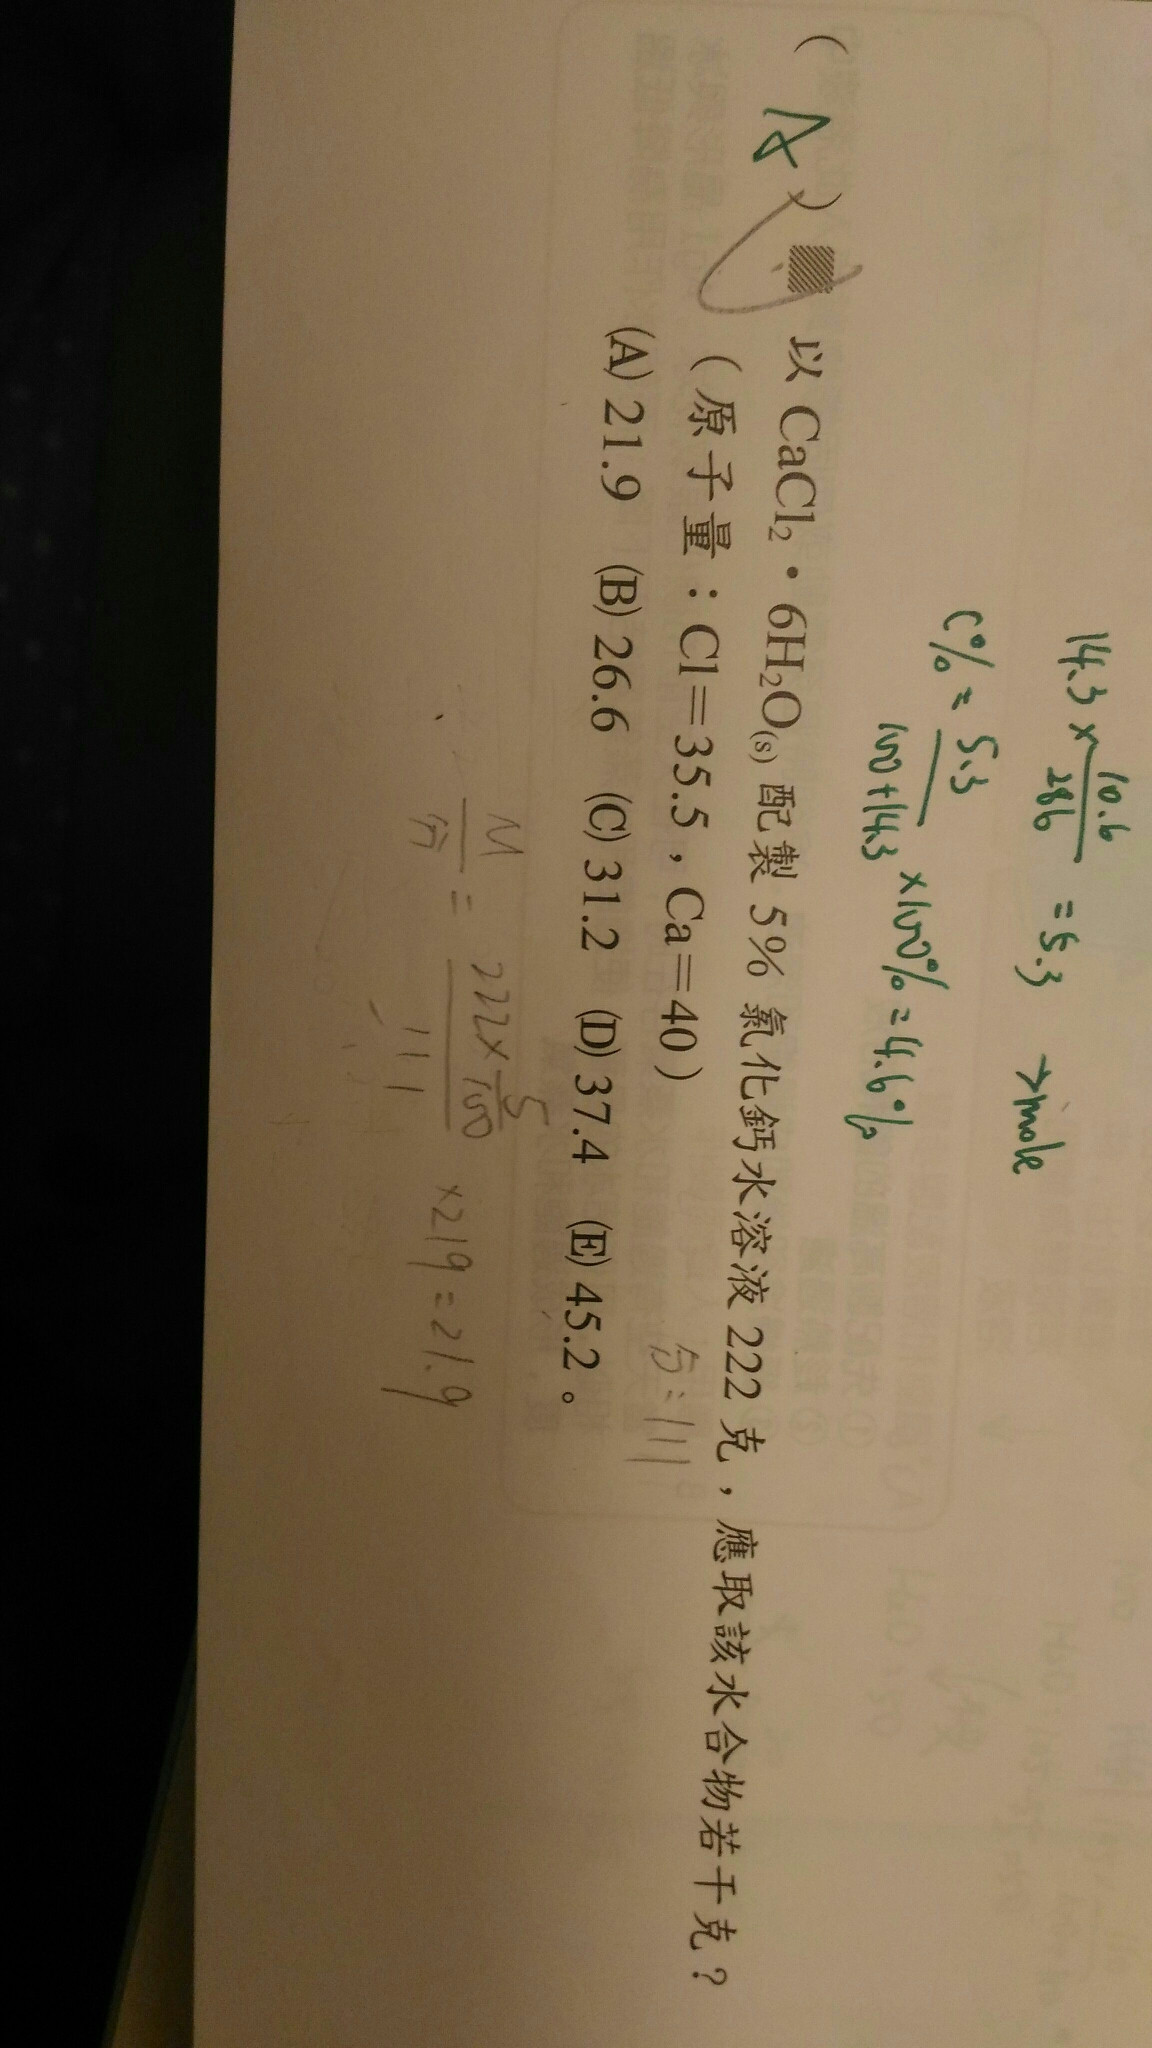 14.3 × 10.6/286 = 5.3 → mole
C% = 5.3/100+14.3 ×100% = 4.6%
( A ) 以 CaCl₂・6H₂O(s) 配製 5% 氯化鈣水溶液 222 克，應取該水合物若干克？
(原子量：Cl=35.5，Ca=40)
分:111
(A) 21.9 (B) 26.6 (C) 31.2 (D) 37.4 (E) 45.2。
M/分 = 222×5/100/111 ×219=21.9